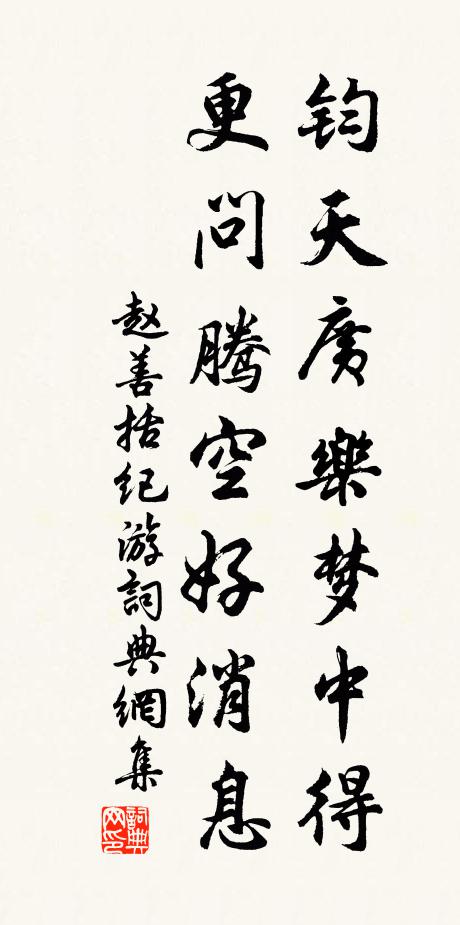 钧天廣樂梦中得
更问腾空好消息
赵善括纪游詞典網集
詞典网印